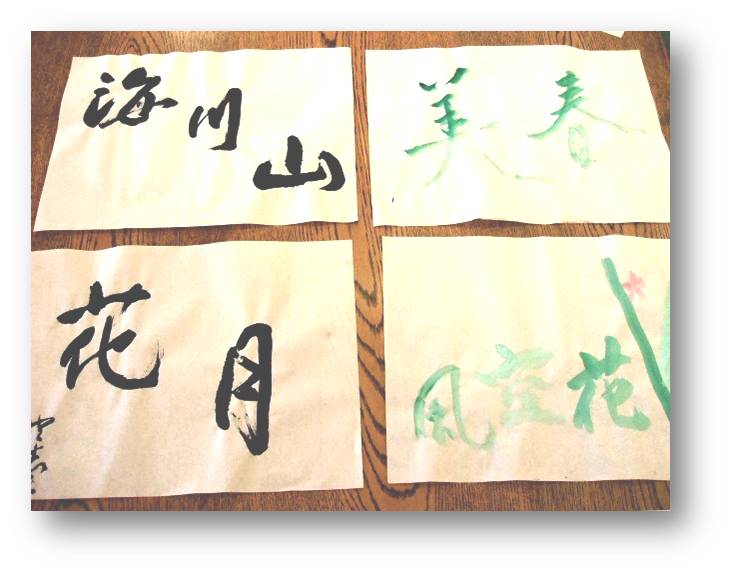 海川山
美春
花月
風空花